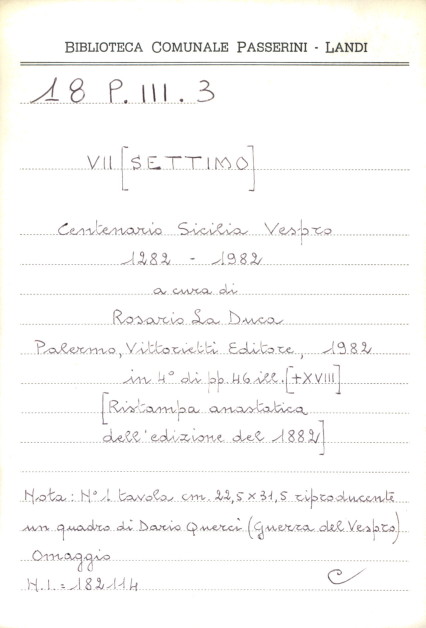 BIBLIOTECA COMUNALE PASSERINI - LANDI
18 P. III. 3
VII [SETTIMO]
Centenario Sicilia Vespro
1282 - 1982
a cura di
Rosario La Duca
Palermo, Vittorietti Editore, 1982
in 4° di pp. 46 ill. [+XVIII]
[Ristampa anastatica
dell'edizione del 1882]
Nota: N° 1 tavola cm. 22,5 x 31,5 riproducente
un quadro di Dario Querci (Guerra del Vespro)
Omaggio
N.I. = 182114
C